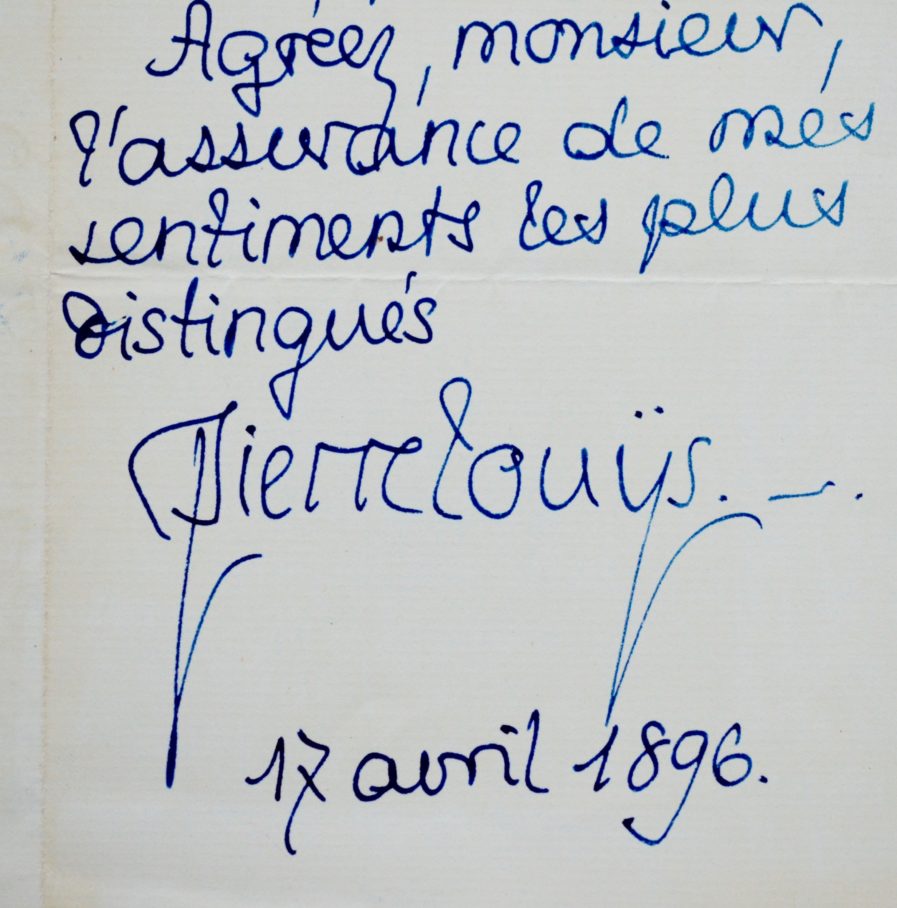 Agréez, monsieur,
l'assurance de mes
sentiments les plus
distingués
Pierre Louÿs.
17 avril 1896.